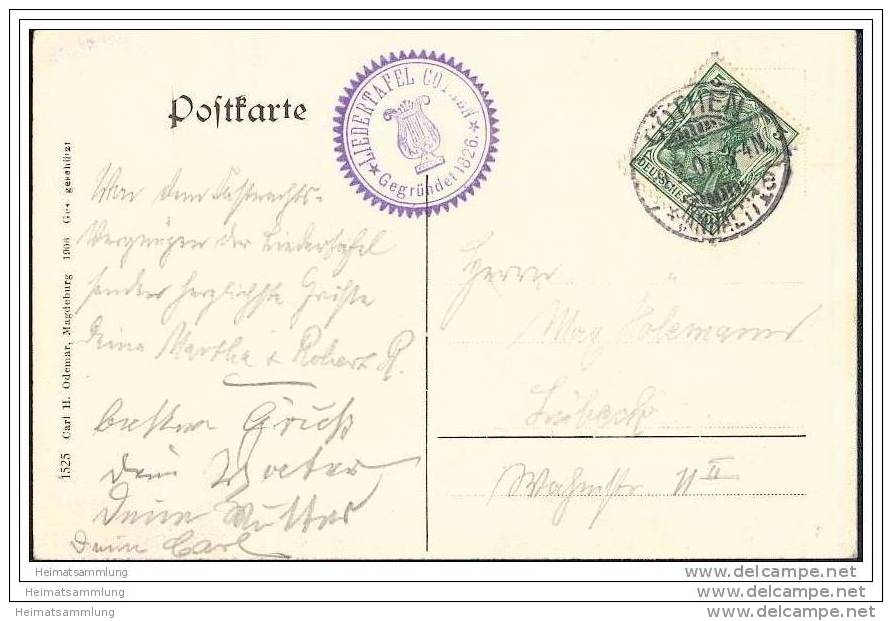 Postkarte
★ LIEDERTAFEL CÖTHEN ★
Gegründet 1826.
CÖTHEN
(ANHALT)
5
5
DEUTSCHES REICH
Von dem Fastnachts-
Vergnügen der Liedertafel
senden herzlichste Grüße
Deine Martha + Robert R.
besten Gruß
Dein Vater
Deine Mutter
Dein Carl
Herrn
Max
Lübeck
Wahmstr 11 II
1525 Carl H. Odemar, Magdeburg 1906 Ges geschützt
Heimatsammlung
Heimatsammlung
Heimatsammlung
www.delcampe.net
www.delcampe.net
www.delcampe.net